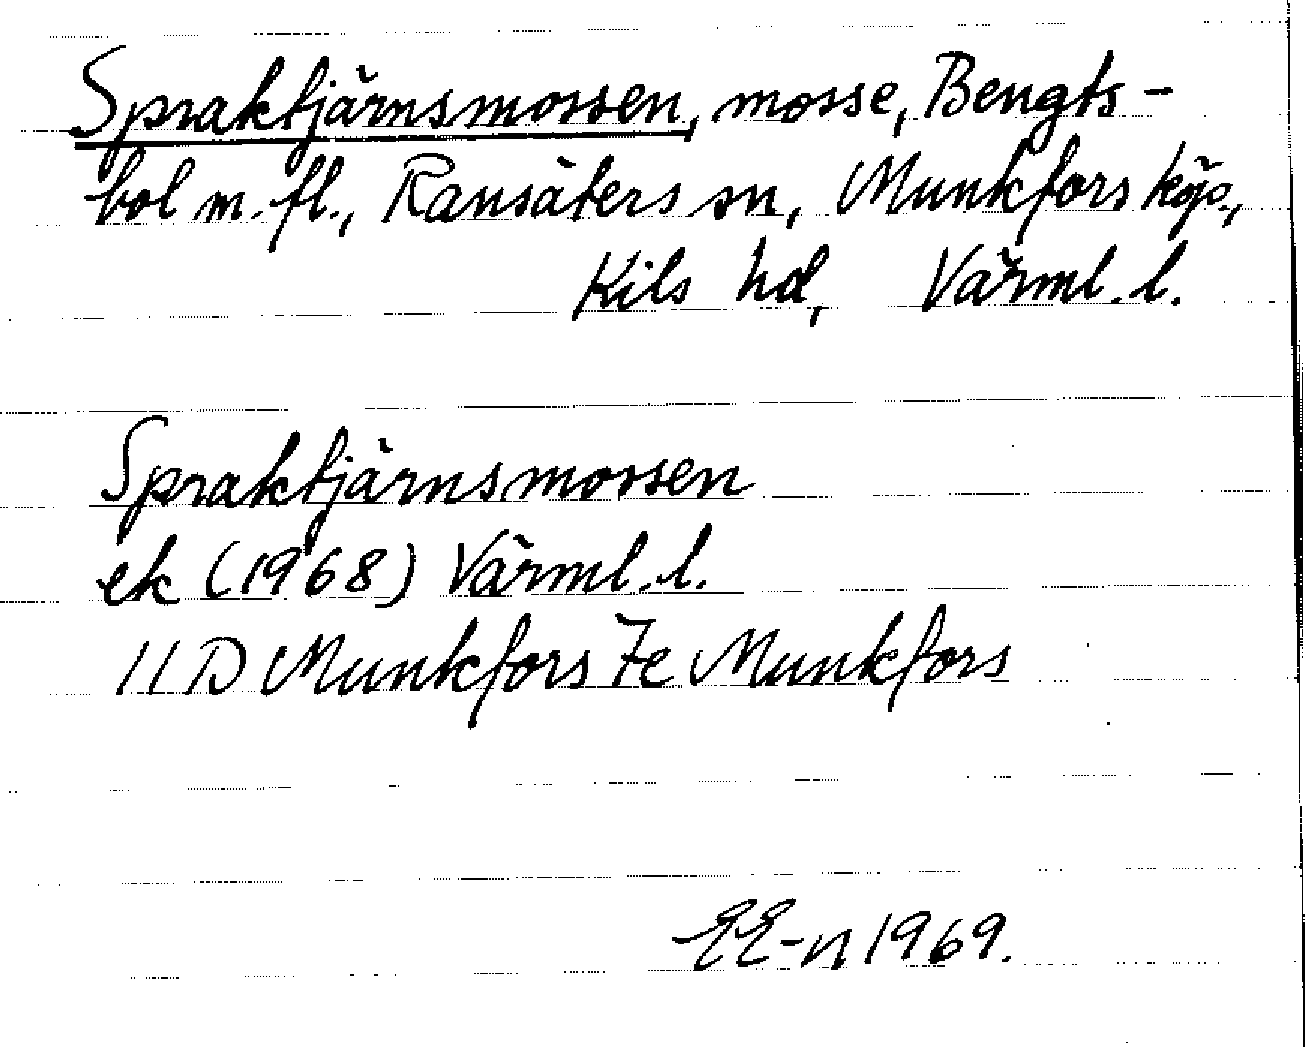 Spraktjärnsmossen, mosse, Bengts-
bol m. fl., Ransäters sn, Munkfors köp.,
Kils hd, Värml. l.
Spraktjärnsmossen
ek (1968) Värml. l.
11 D Munkfors 7e Munkfors
EE-n 1969.